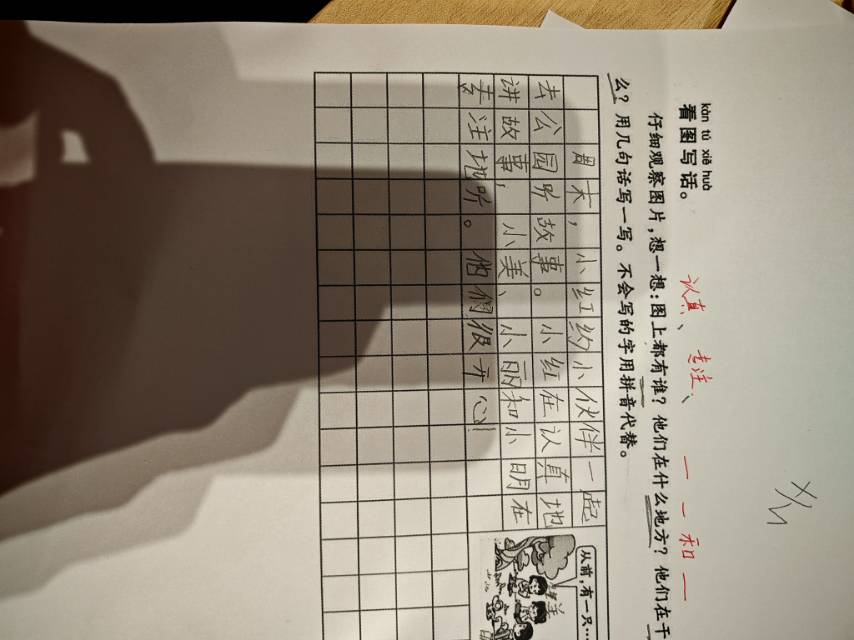 kàn tú xiě huà
看图写话。
认真、专注、 一 一 和 一
仔细观察图片,想一想:图上都有谁?他们在什么地方?他们在干
么?用几句话写一写。不会写的字用拼音代替。
周末,小红约小伙伴一起
去公园听故事。小红在认真地
讲故事,小美、小丽和小明在
专注地听。他们很开心!
从前,有一只…